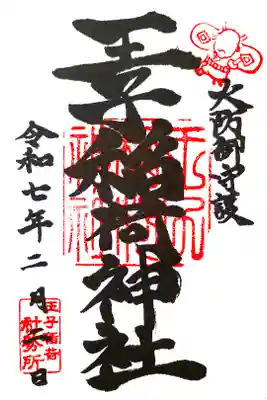 火防御守護
王子稲荷神社
令和七年二月二日
王子稲荷
社務所